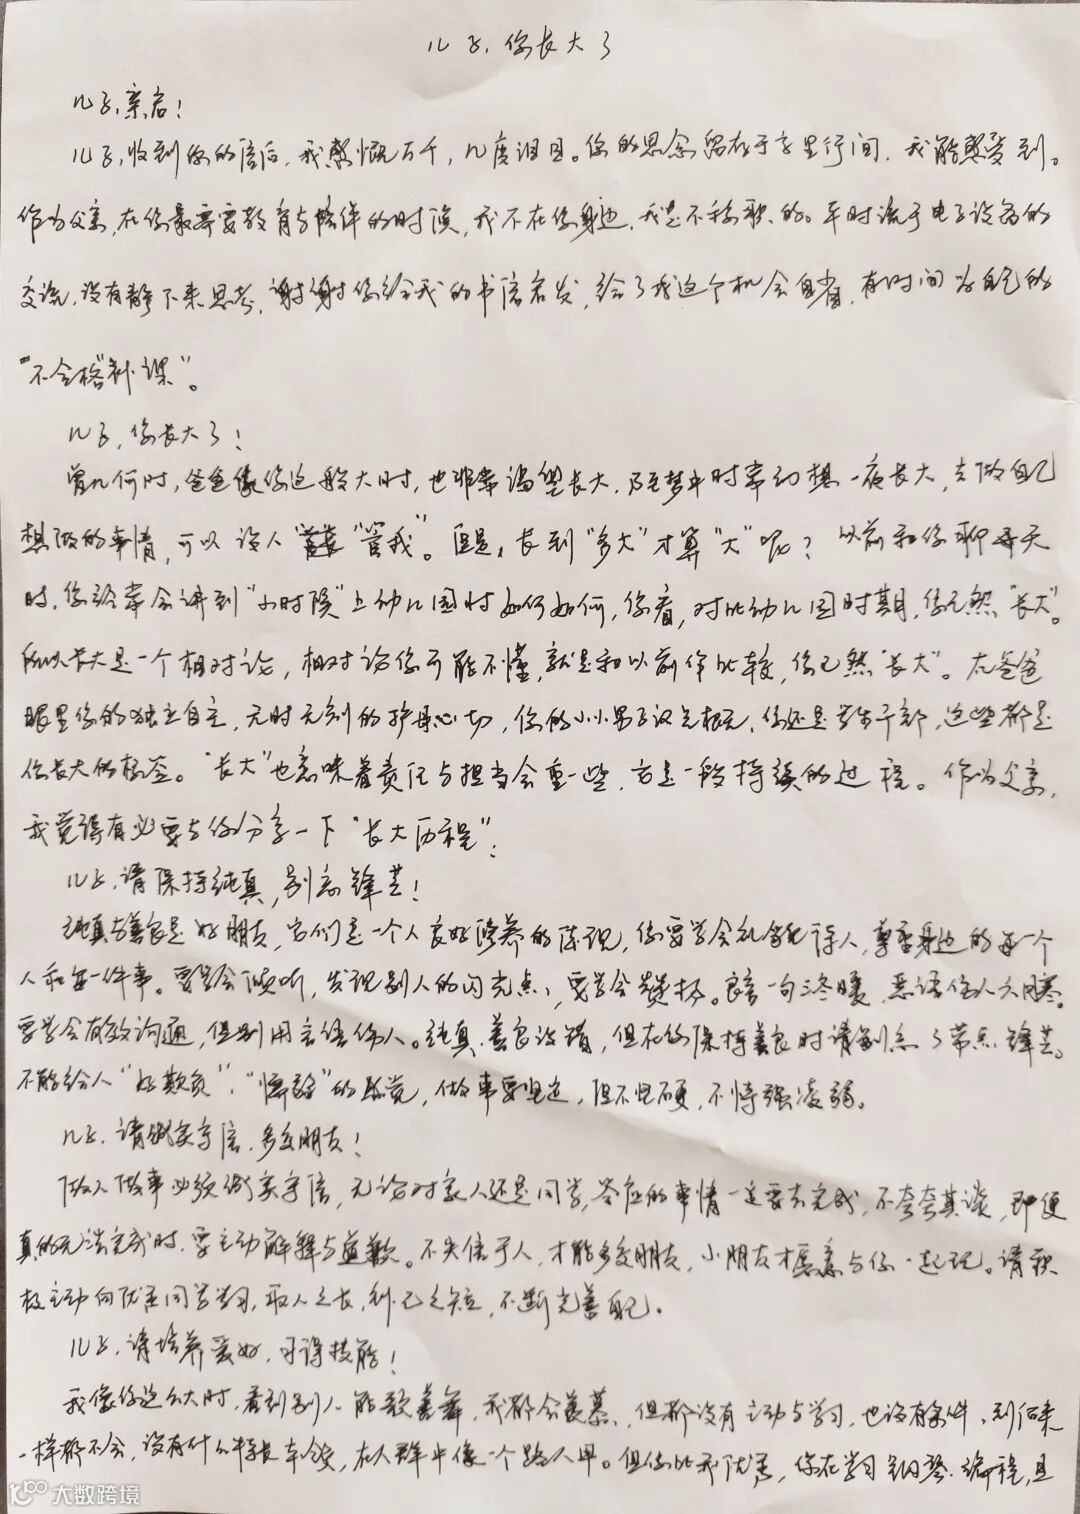 儿子,你长大了
儿子,亲启!
儿子,收到你的信后,我感慨万千,几度泪目。你的思念留在于字里行间,我能感受到。
作为父亲,在你最需要教育与陪伴的时候,我不在你身边,我是不称职的。平时流于电子设备的
交流,没有静下来思考,谢谢你给我的书信启发,给了我这个机会自省,有时间为自己的
"不合格"补课"。
儿子,你长大了!
曾几何时,爸爸像你这般大时,也非常渴望长大,乃至梦中时常幻想一夜长大,去做自己
想做的事情,可以没人"管我"。但是,长到"多大"才算"大"呢?以前和你聊天
时,你经常会讲到"小时候"上幼儿园时如何如何,你看,对比幼儿园时期,你已然"长大"。
所以长大是一个相对论,相对论你可能不懂,就是和以前作比较,你已然"长大"。在爸爸
眼里你的独立自主,无时无刻的护母心切,你的小小男子汉气概,你还是学生干部,这些都是
你长大的标签。"长大"也意味着责任与担当会重一些,它是一段持续的过程。作为父亲,
我觉得有必要与你分享一下"长大历程":
儿子,请保持纯真,别忘锋芒!
纯真与善良是好朋友,它们是一个人良好修养的体现,你要学会礼貌待人,尊重身边的每一个
人和每一件事。要学会倾听,发现别人的闪光点,要学会赞扬。良言一句三冬暖,恶语伤人六月寒。
要学会有效沟通,但别用言语伤人。纯真、善良没错,但在你保持善良时请别忘了带点锋芒。
不能给人"好欺负"、"懦弱"的感觉,做事要坚定,但不强硬,不恃强凌弱。
儿子,请诚实守信,多交朋友!
做人做事必须诚实守信,无论对家人还是同学,答应的事情一定要去完成,不夸夸其谈,即便
真的无法完成时,要主动解释与道歉。不失信于人,才能多交朋友,小朋友才愿意与你一起玩。请积
极主动向优秀同学学习,取人之长,补己之短,不断完善自己。
儿子,请培养爱好,习得技能!
我像你这么大时,看到别人能歌善舞,我都会羡慕,但都没有主动去学习,也没有条件,到头来
一样都不会,没有什么特长,在人群中像一个路人甲。但你比我优秀,你在学习钢琴、编程,且
大数跨境